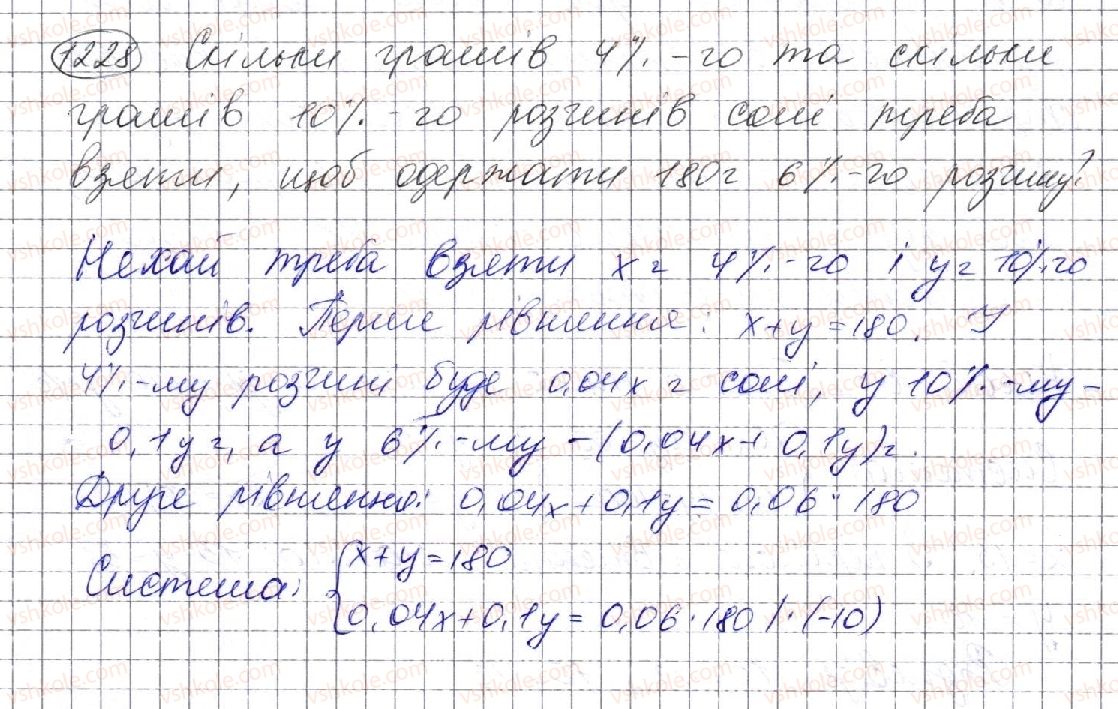 1228 Скільки грамів 4%-го та скільки
грамів 10%-го розчинів солі треба
взяти, щоб одержати 180г 6%-го розчину?
Нехай треба взяти x г 4%-го і y г 10%го
розчинів. Перше рівняння: x+y=180. У
4%-му розчині буде 0,04x г солі, у 10%-му-
0,1y г, а у 6%-му -(0,04x+0,1y)г.
Друге рівняння: 0,04x+0,1y=0,06·180
Система: {x+y=180
0,04x+0,1y=0,06·180 |·(-10)